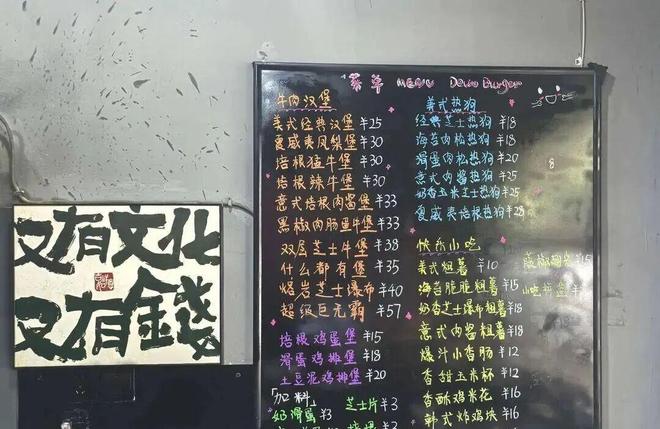 又有文化
又有錢
菜单 MENU Devin Burger
牛肉汉堡
美式经典汉堡 ¥25
夏威夷凤梨堡 ¥30
培根猛牛堡 ¥30
培根辣牛堡 ¥30
意式肉酱堡 ¥33
黑椒肉肠蛋牛堡 ¥33
双层芝士牛堡 ¥38
什么都有堡 ¥35
爆岩芝士瀑布 ¥40
超级巨无霸 ¥57
培根鸡蛋堡 ¥15
滑蛋鸡排堡 ¥18
土豆泥鸡排堡 ¥20
「加料」
奶滑蛋 ¥3 芝士片 ¥3
美式热狗
经典芝士热狗 ¥18
海苔肉松热狗 ¥18
滑蛋肉松热狗 ¥20
意式肉酱热狗 ¥25
奶香玉米芝士热狗 ¥25
夏威夷培根热狗 ¥28
快乐小吃
美式粗薯 ¥10
海苔脆脆粗薯 ¥15
奶香芝士瀑布粗薯 ¥18
意式肉酱粗薯 ¥18
爆汁小香肠 ¥12
香甜玉米杯 ¥12
香酥鸡米花 ¥16
韩式炸鸡块 ¥16